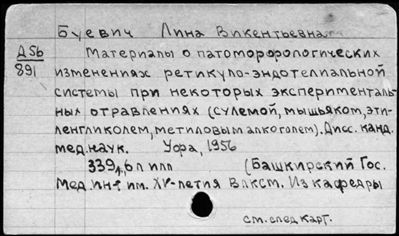 Буевич Лина Викентьевна
Д56
891
Материалы о патоморфологических
изменениях ретикуло-эндотелиальной
системы при некоторых эксперименталь-
ных отравлениях (сулемой, мышьяком, эти-
ленгликолем, метиловым алкоголем). Дисс. канд.
мед. наук. Уфа, 1956
339 л. илл (Башкирский Гос.
Мед. ин-т им. XV-летия ВЛКСМ. Из кафедры
см. след карт.